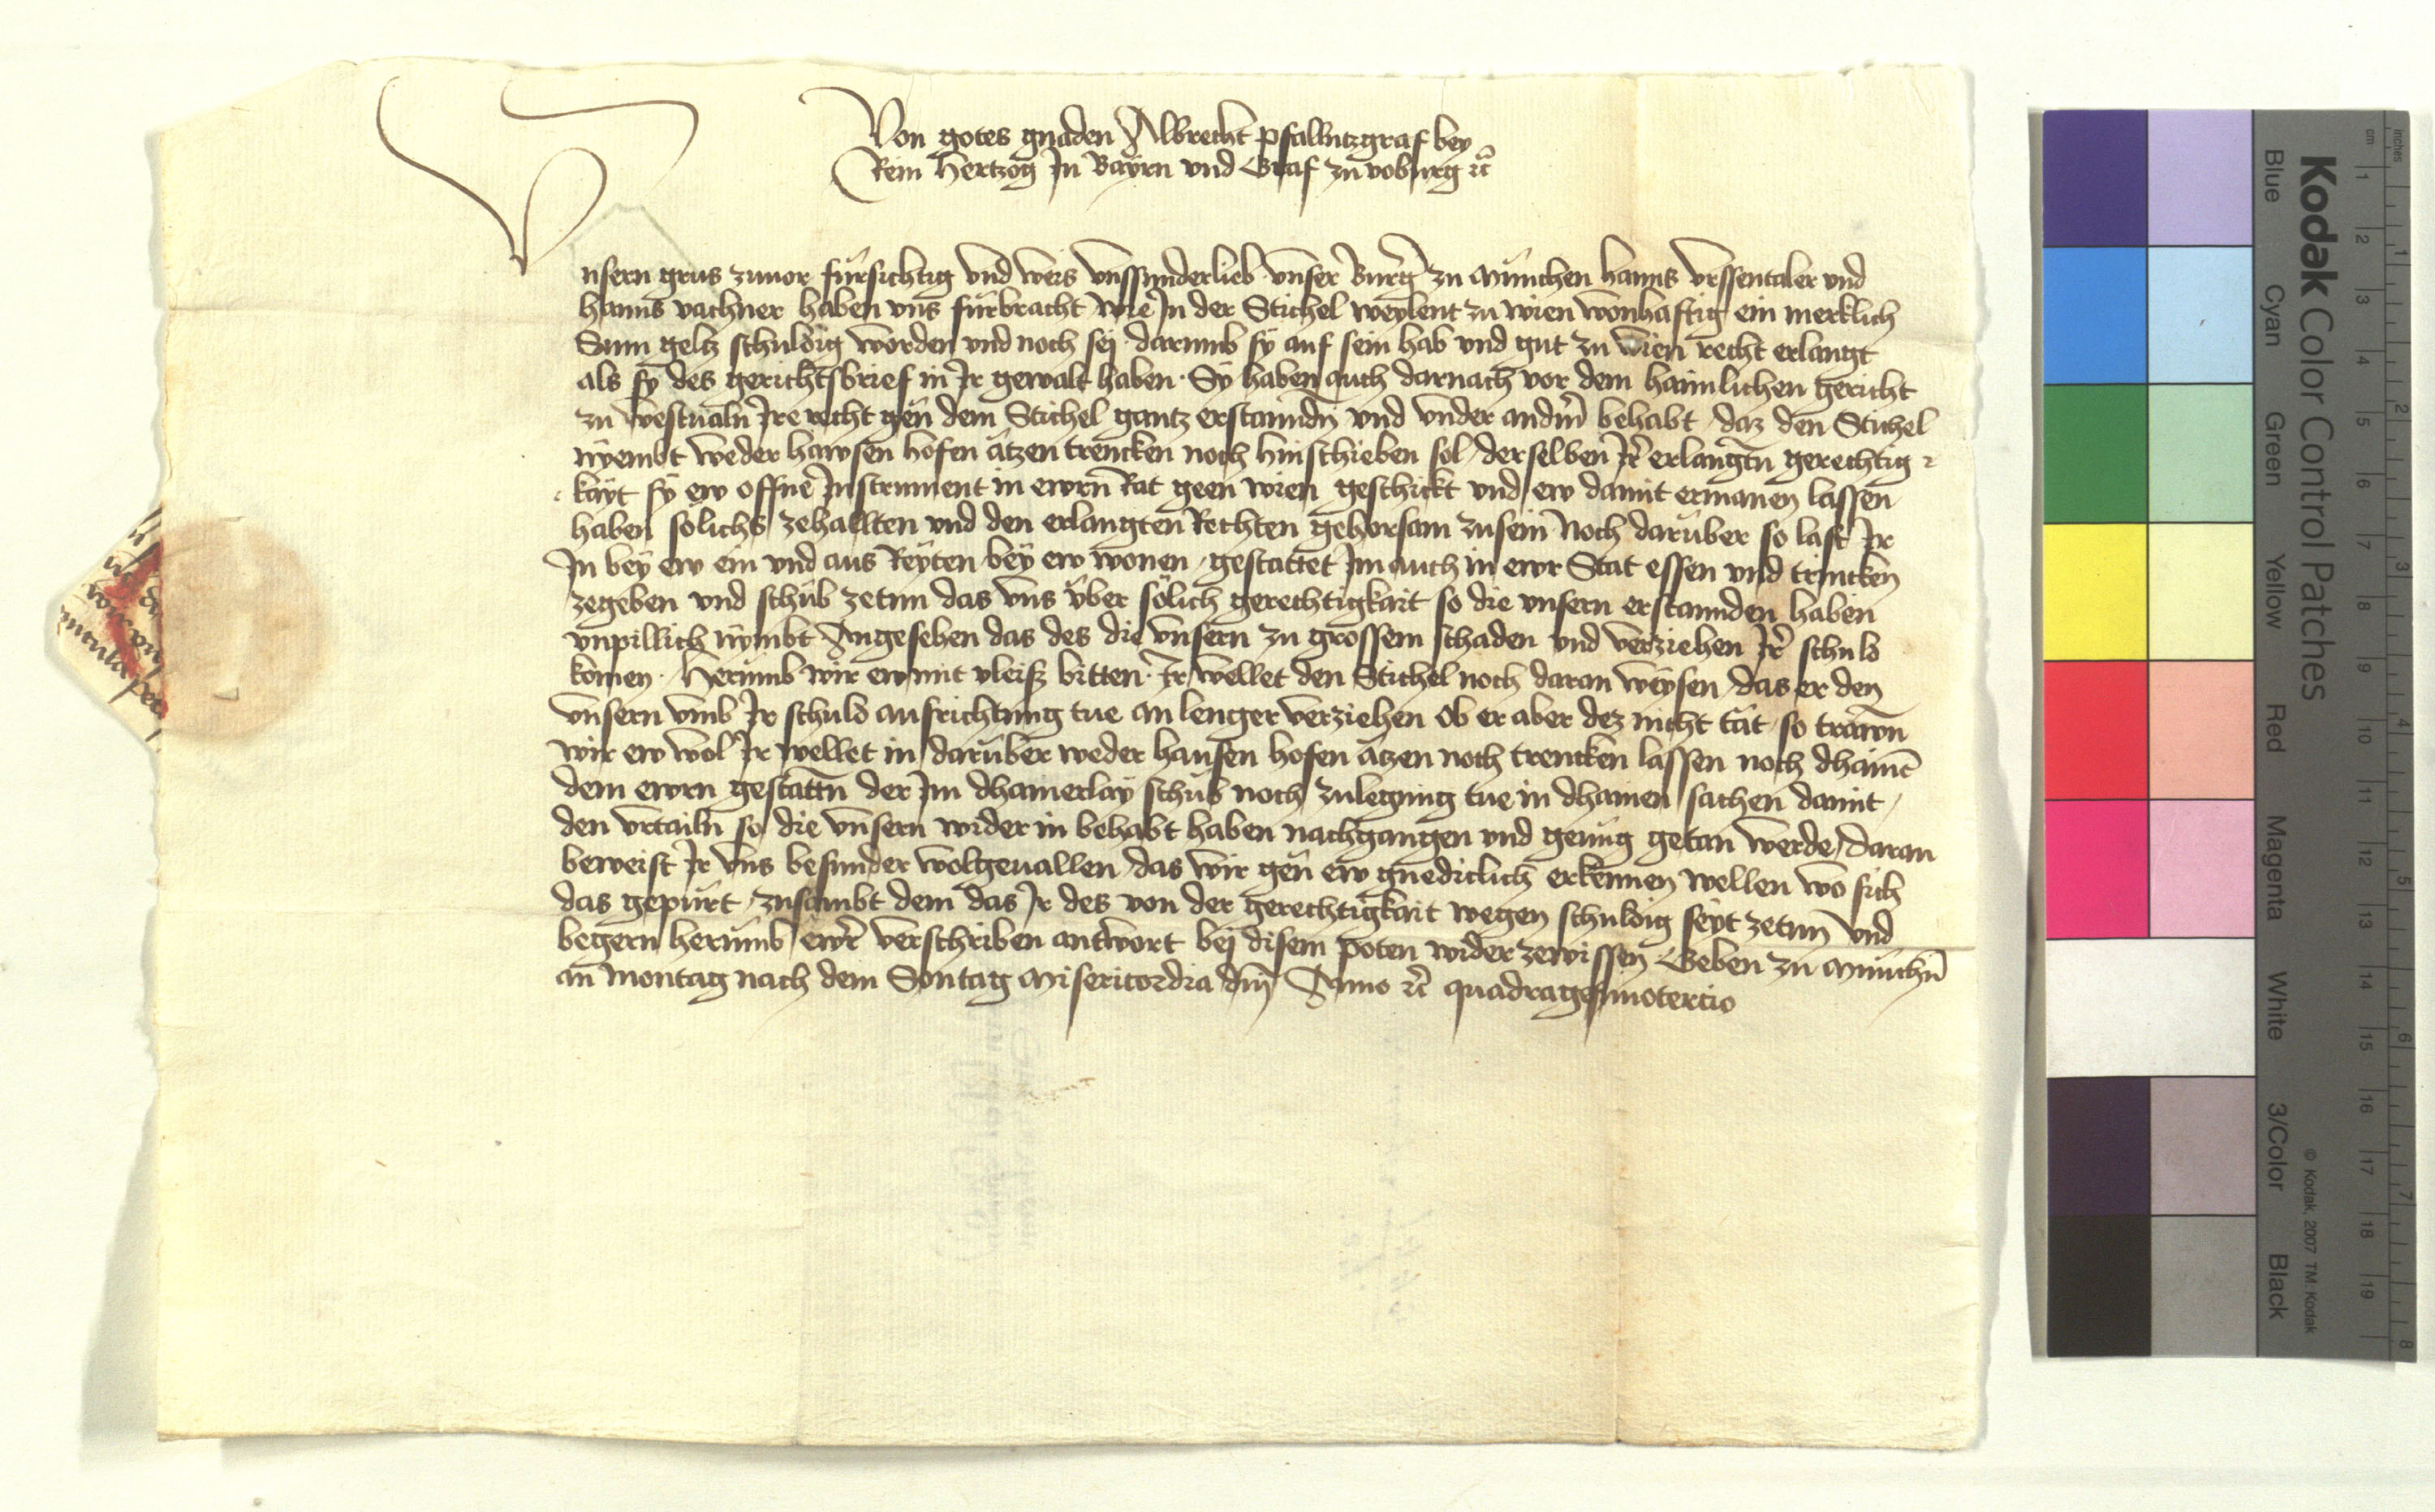 Von gotes gnaden Albrecht pfallntzgraf bey
Rein Hertzog In Bayrn vnd Graf zu voburg etc̃
Vnsern grus zuuor fürsichtig vnd weis vnssunderlieb vnser Burg̃ zu München hanns vrssentaler vnd
hanns vachner haben vns fürbracht wie In der Stichel weylent zu wien wonhaftig ein merklich
Sum geltz schuldig worden vnd noch sej darumb sy auf sein hab vnd gut zu wien recht erlangt
als sy des gerichtsbrief in Ir gewalt haben. Sy haben auch darnach vor dem haimlichen gericht
zu westualn Ire recht gen̄ dem Stichel gantz erstanndn̄ vnd vnder andm̄ behabt daz den Stichel
nyembt weder hawsen hofen ätzen trencken noch hinschieben sol derselben Ir̃ erlangtn̄ gerechtig
kayt sy ew offne Instrument in ewrn̄ Rat geen wien geschickt vnd ew damit ermanen lassen
haben solichs zehallten vnd den erlangten Rechten gehorsam zusein Noch darüber so last Ir
In bey ew ein vnd aus Reyten bey ew wonen gestattet Im auch in ewr Stat essen vnd trincken
zegeben vnd schub zetun das vns über sölich gerechtigkait so die vnsern erstannden haben
vnpillich nymbt Angesehen das des die vnsern zu grossem schaden vnd verziehen Ir̃ schuld
komen. Herumb wir ew mit vleisz bitten. Ir wellet den Stichel noch daran weysen das er den
vnsern vmb Ir schuld aufrichtung tue an lenger verziehen Ob er aber dez nicht tät so trawn̄
wir ew wol Ir wellet in darüber weder hausen hofen ätzen noch trencken lassen noch dhainē
dem ewrn gestattn̄ der Im dhainerlay schub noch zulegung tue in dhainen sachen damit
den vrtailn so die vnsern wider in behabt haben nachgangen vnd genug getan werde, daran
beweist Ir vns besunder wolgeuallen das wir gen̄ ew gnediclich erkennen wellen wo sich
das gepürt zusambt dem das Ir des von der gerechtigkait wegen schuldig seyt zetun vnd
begern herumb ewr̃ verschriben antwort bej disem poten wider zewissen Geben zu Münichn̄
an Montag nach dem Sontag Misericordia dn̄j Anno etc̃ quadragesimotercio
Kodak Color Control Patches
Blue Cyan Green Yellow Red Magenta White 3/Color Black
© Kodak, 2007 TM: Kodak
inches 1 2 3 4 5 6 7 8
cm 1 2 3 4 5 6 7 8 9 10 11 12 13 14 15 16 17 18 19